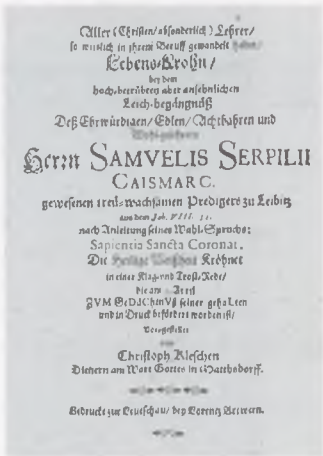 Aller (Christen/ absonderlich) Lehrer/
so in ihrem Beruff gewandelt
Lebens-Krohn/
bey dem
hoch-betrübten aber ansehnlichen
Leich-begängnüß
Deß Ehrwürdigen/ Edlen/ Achtbahren und
Herrn SAMVELIS SERPILII
CAISMARC.
gewesenen treu-wachsamen Predigers zu Leibitz
aus dem Job. VIII.
nach Anleitung seines Wahl-Spruchs:
Sapientia Sancta Coronat.
Die Heilige Weißheit Kröhnet
in einer Klag-und Trost-Rede/
die am April
ZVM GeDäChtnVß seiner gehalten
und in Druck befördert worden ist/
Vorgestellet
von
Christoph Kleschen
Dienern am Wort Gottes in Matthsdorff.
Gedruckt zur Leutschau/ bey Lorentz Brewern.